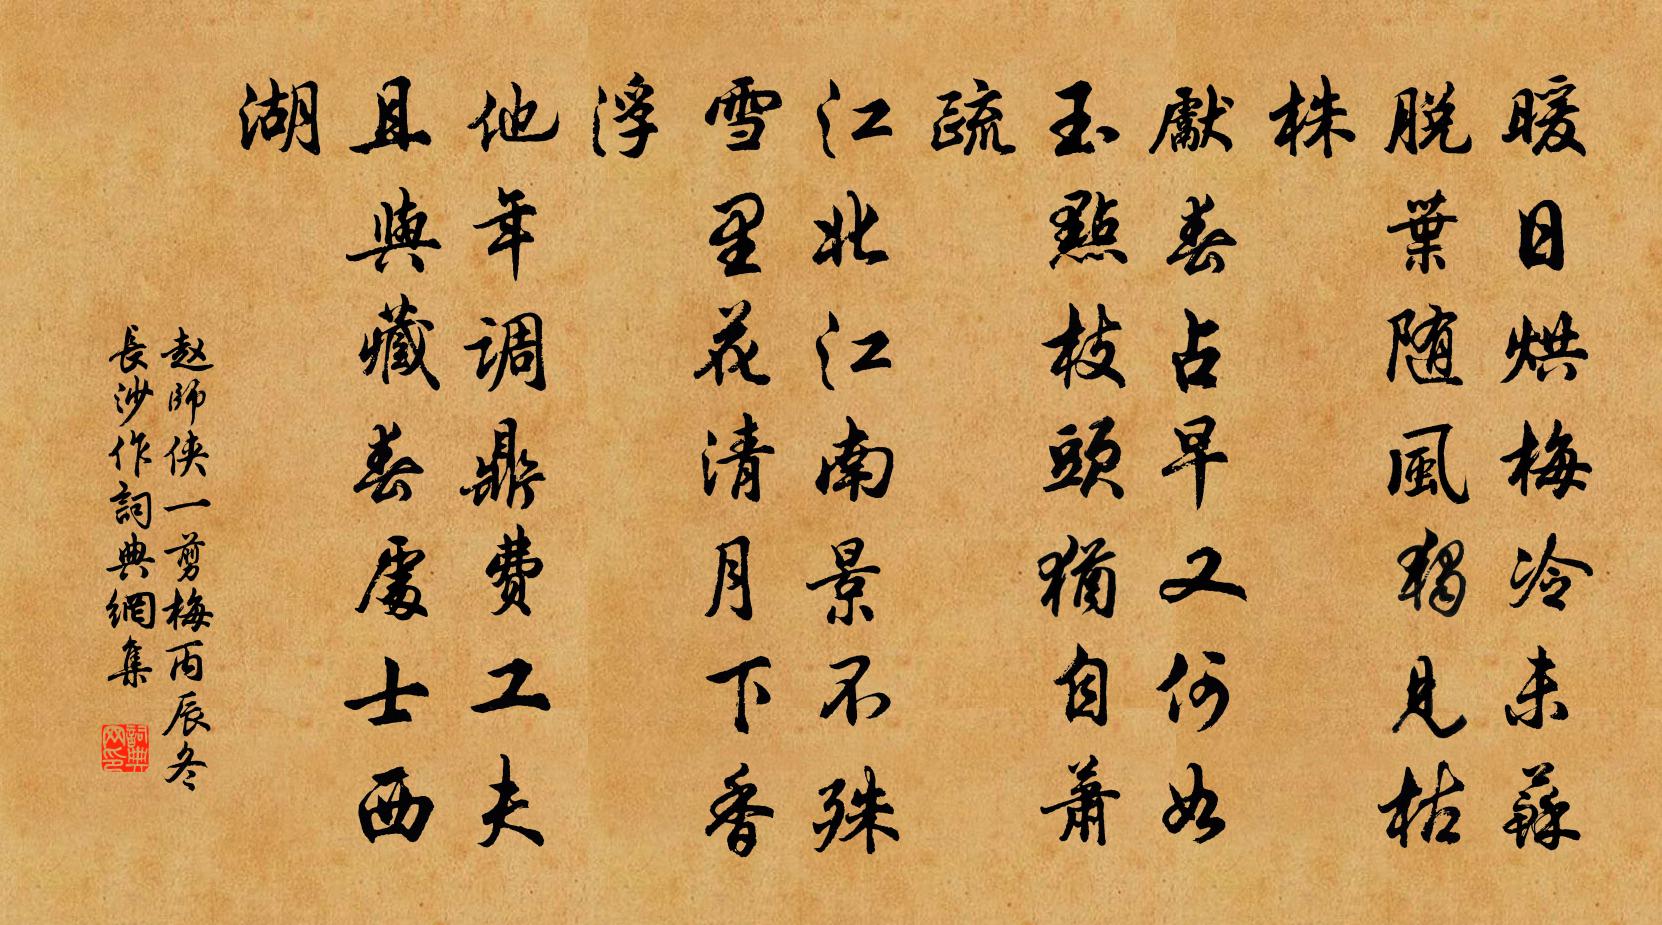 暖日烘梅冷未蘇
脱葉随風獨見枯
株
獻春占早又何如
玉點枝頭猶自蕭
疏
江北江南景不殊
雪里花清月下香
浮
他年调鼎费工夫
且與藏春處士西
湖
赵師侠一剪梅丙辰冬
長沙作詞典網集
詞典
网印